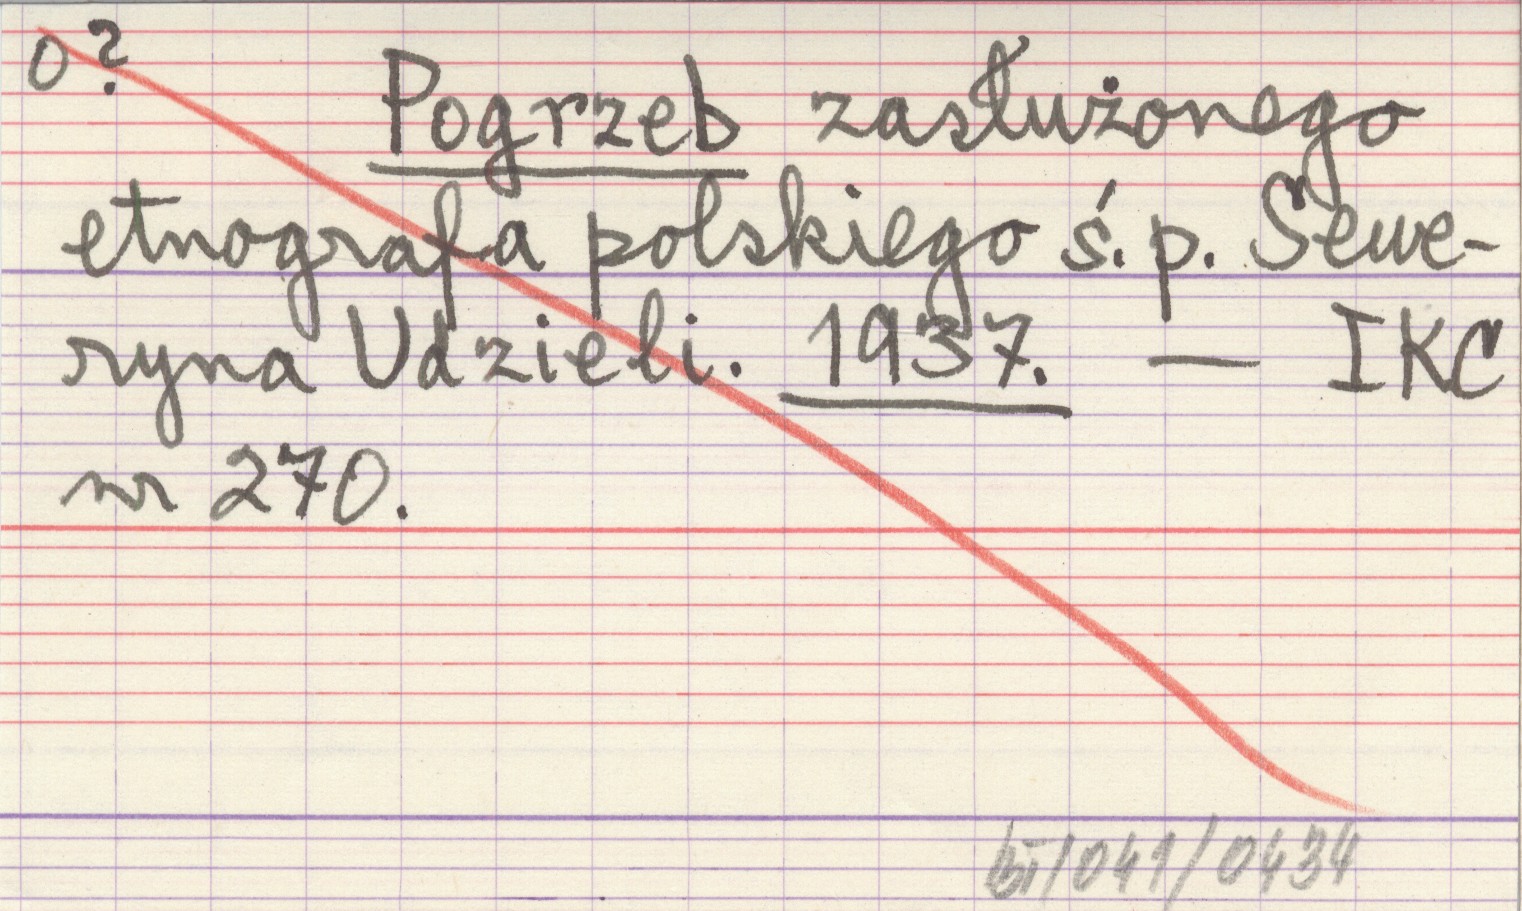 0?
Pogrzeb zasłużonego
etnografa polskiego ś.p. Sewe-
ryna Udzieli. 1937. — IKC
nr 270.
/041/0434